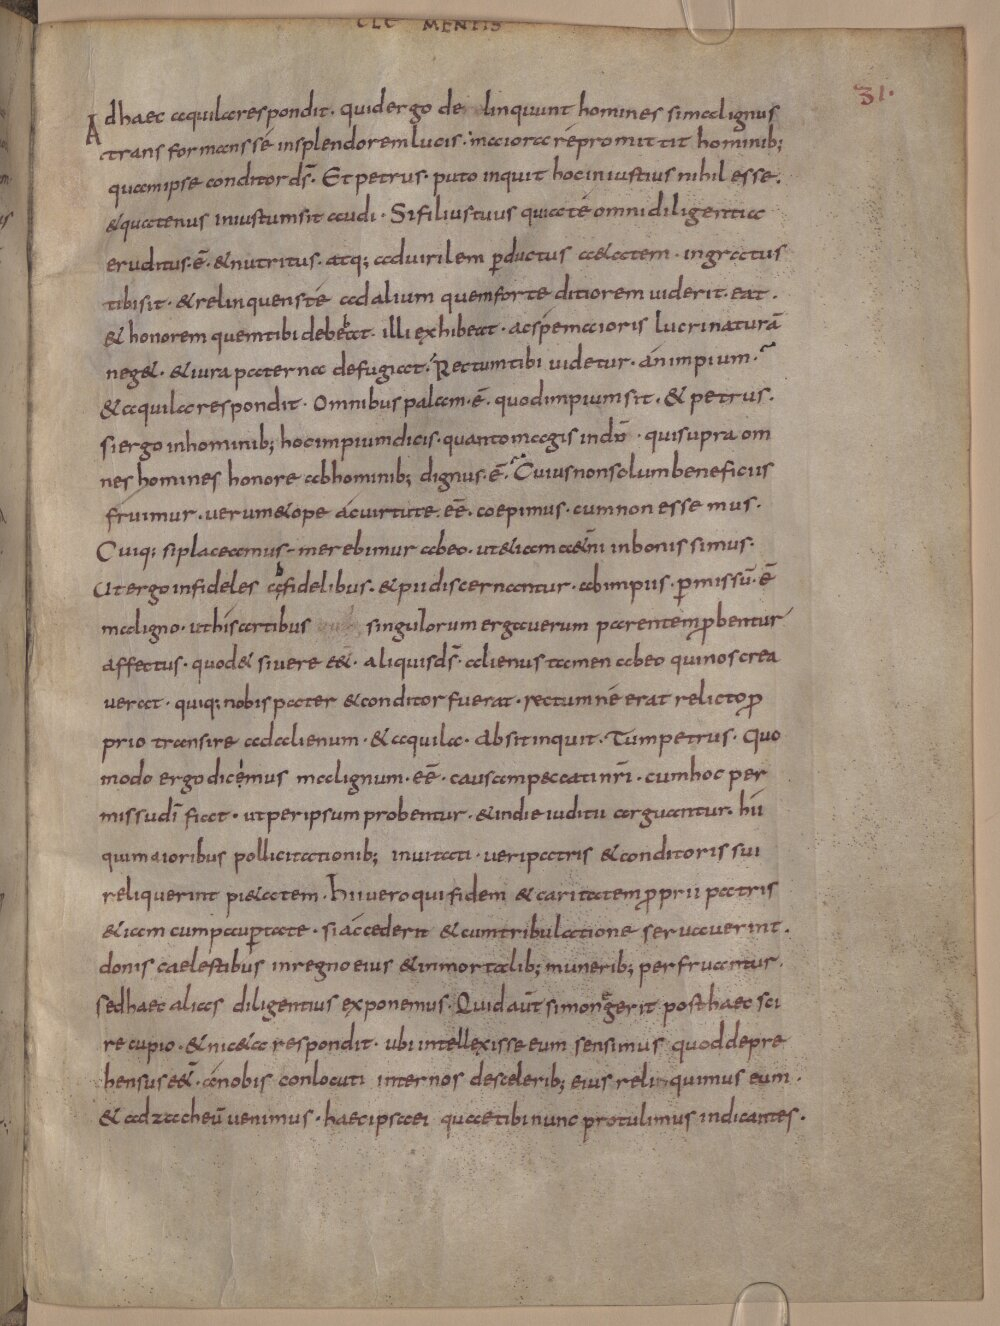 CLE MENTIS
31.
Adhaec aquilarespondit. quidergo de linquunt homines simalignus
transformansse insplendoremlucis. maiorarepromittit hominib;
quamipse conditords̄. Et petrus. puto inquit hociniustius nihil esse.
&quatenus iniustumsit audi. Sifiliustuus quiate omnidiligentia
eruditus.ē. &nutritus. atq; aduirilem ꝑductus aetatem. ingratus
tibisit. &relinquenste adalium quemforte ditiorem uiderit. eat.
& honorem quemtibi debebat. illi exhibeat. acspemaioris lucrinaturā
neg&. &iura paterna defugiat. Rectumtibi uidetur. animpium.
&aquilarespondit. Omnibus palam.ē. quodimpiumsit. & petrus.
siergo inhominib; hocimpiumdicis. quantomagis indō. quisupra om
nes homines honore abhominib; dignus.ē. Cuiusnonsolumbeneficiis
fruimur. uerum&ope acuirtute.eē. coepimus. cumnon esse mus.
Cuiq; siplaceamus. merebimur abeo. ut&iamaet̄ni inbonis simus.
Ut ergo infideles afidelibus. &pii discernantur. abimpiis. ꝑmissū.ē
maligno. uthisartibus singulorum ergauerum parentemꝓbentur
affectus. quod& siuere eē&. aliquisds̄. alienus tamen abeo quinoscrea
uerat. quiq; nobispater &conditor fuerat. rectumne erat relictoꝓ
prio transire adalienum. &aquila. absitinquit. Tumpetrus. Quo
modo ergo dicemus malignum.eē. causampeccatinr̄i. cumhoc per
missudī fiat. utperipsumprobentur. &indieiuditii arguantur. hii
quimaioribus pollicitationib; inuitati. ueripatris &conditoris sui
reliquerint pi&atem. hiiueroquifidem &caritatemꝓprii patris
&iam cumpauꝑtate. siaccederit &cumtribulatione seruauerint.
donis caelestibus inregnoeius &inmortalib; munerib; perfruantur.
sedhaec alias diligentius exponemus. Quidaūt simongerit posthaec sci
re cupio. &nic&a respondit. ubi intellexisse eum sensimus quoddepre
hensuseē&. anobis conlocuti internos descelerib; eius reliquimus eum.
& adzacheū uenimus. haecipsaei quaetibi nunc protulimus indicantes.